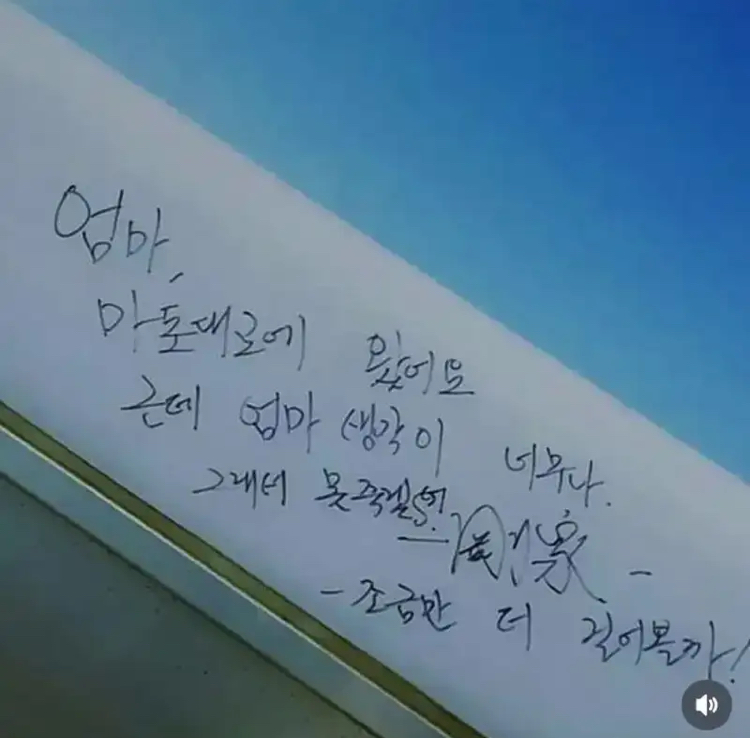 엄마,
마포대교에 왔어요
근데 엄마 생각이 너무나.
그래서 못죽겠어.
-조금만 더 걸어볼까!